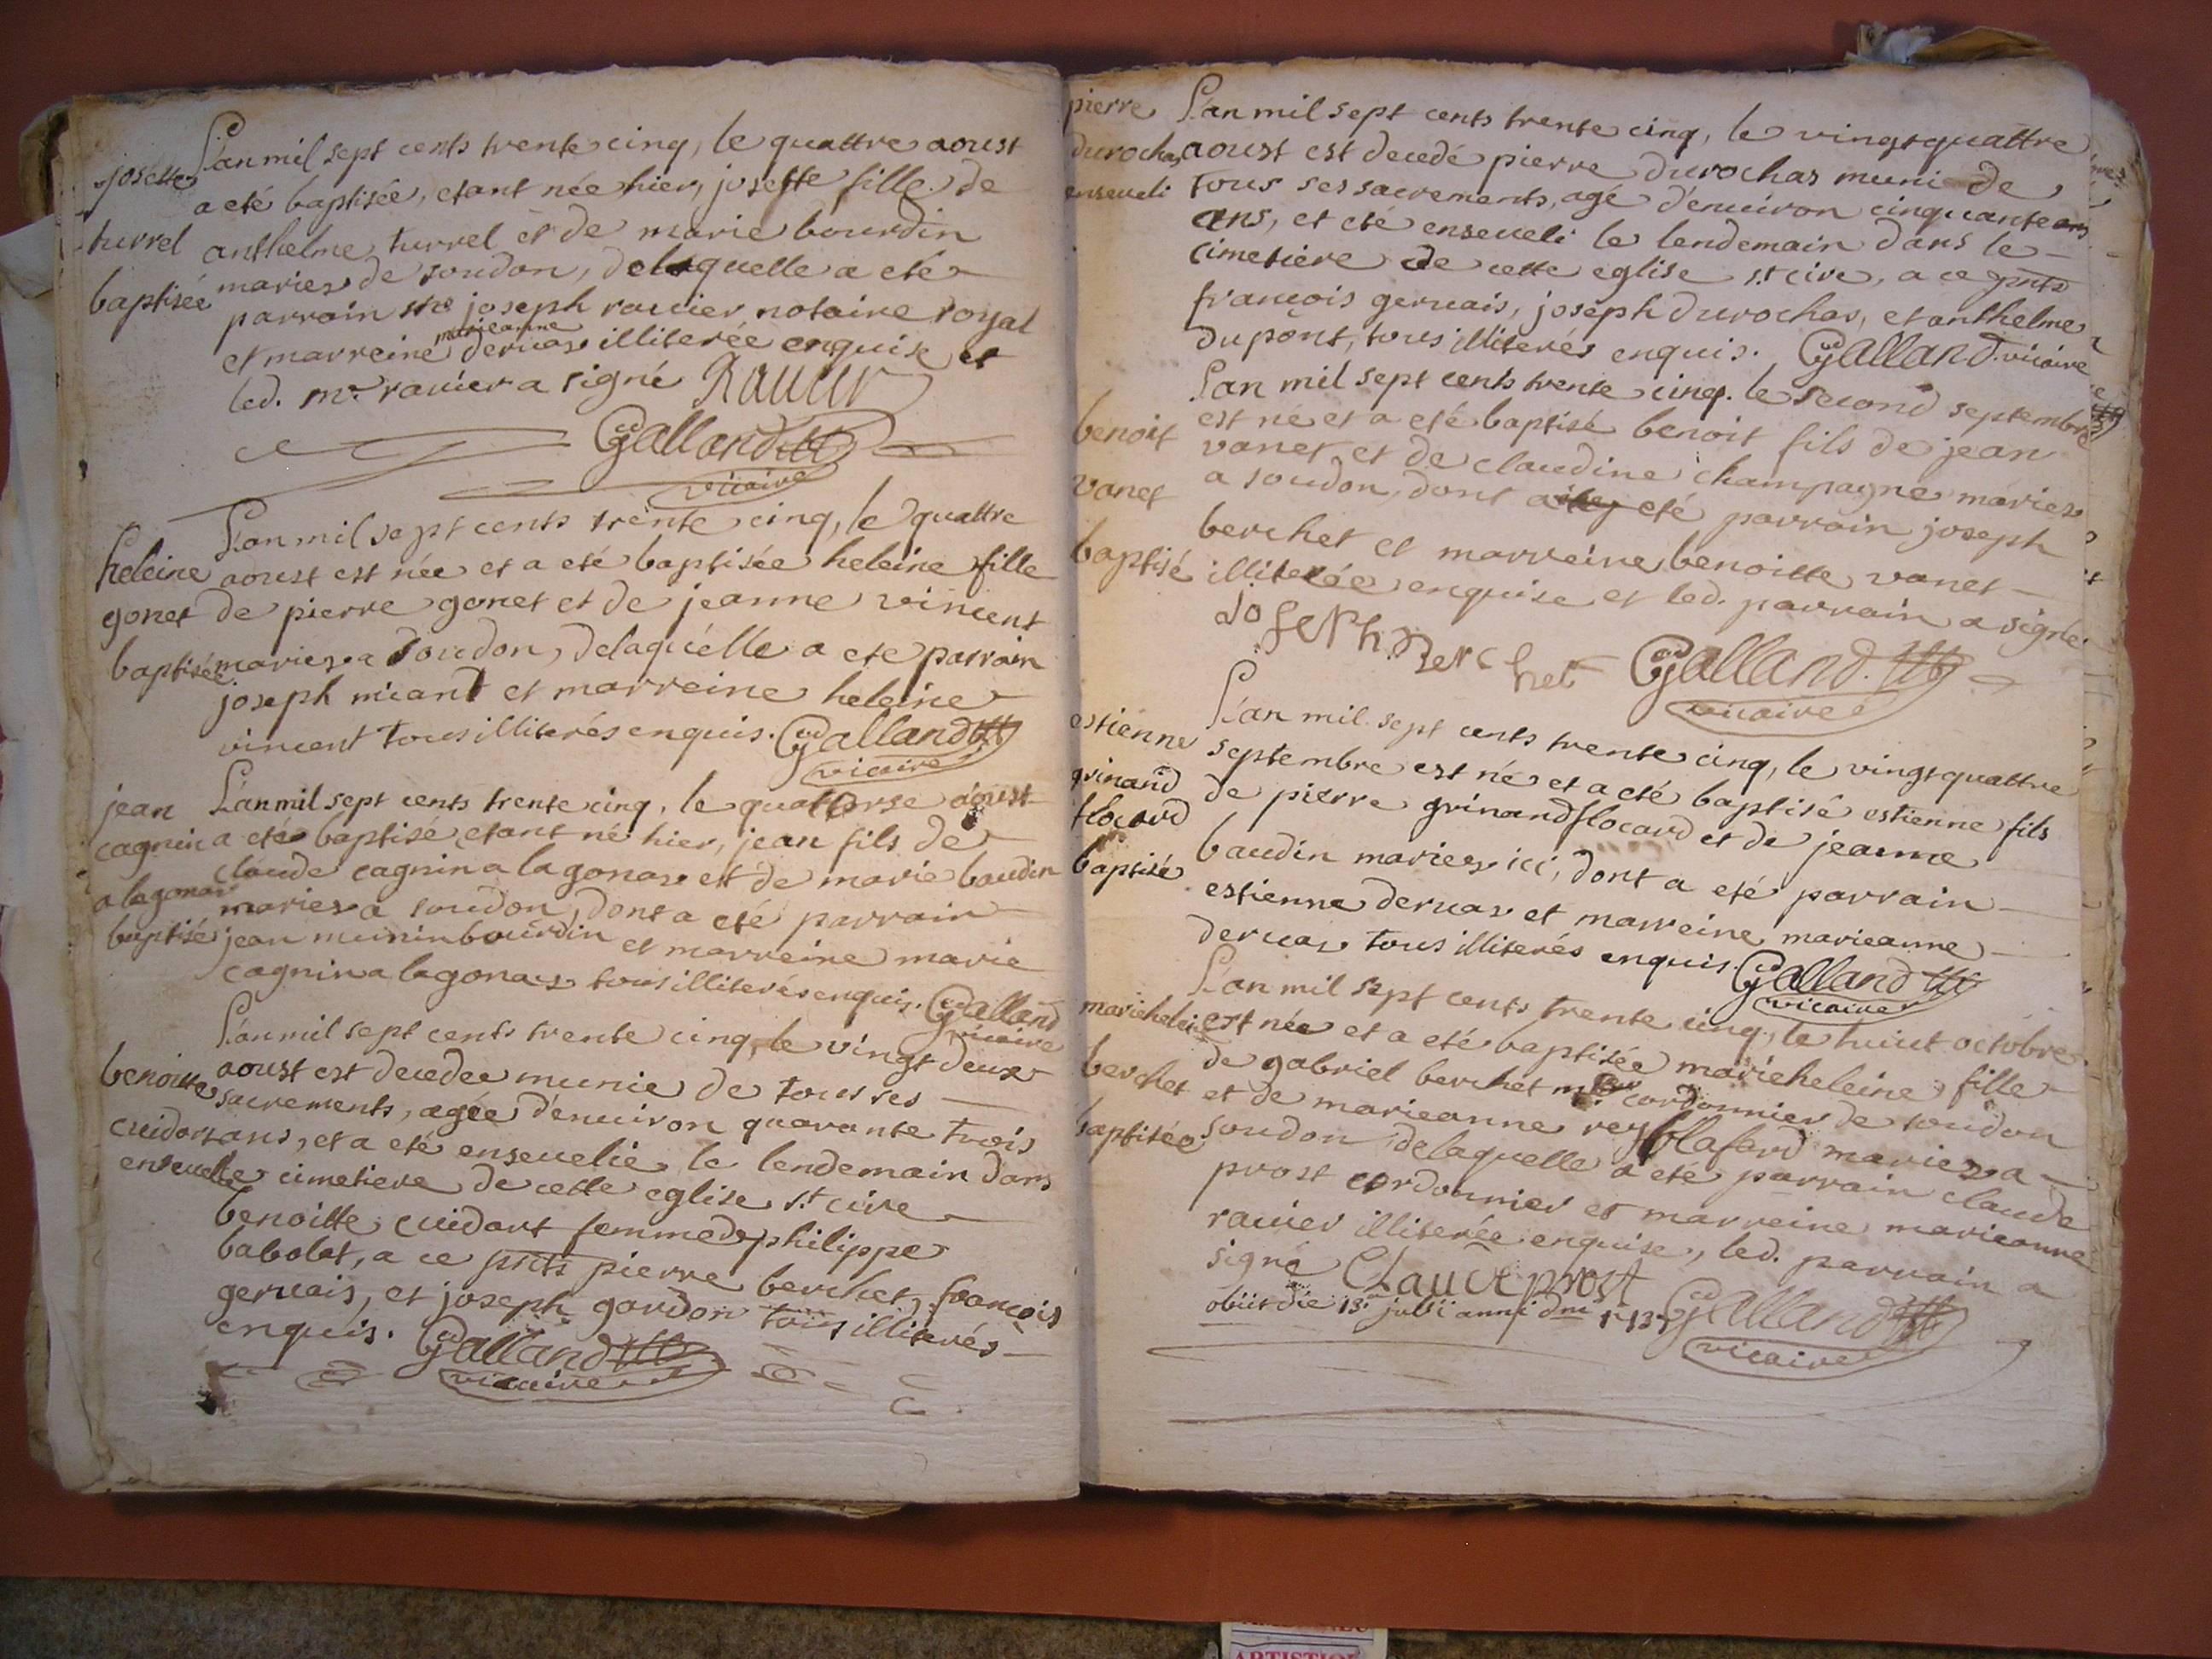 L'an mil sept cents trente cinq, le quattre aoust
josette
a eté baptisée, etant née hier, josette fille de
turrel
anthelme turrel et de marie bourdin
mariez de soudon, delaquelle a eté
baptisée
parrain sre joseph rauier notaire royal
marieanne
et marreine deruas illiterée enquise et
led. mr. rauier a signé Rauier
Galland
vicaire
L'an mil sept cents trente cinq, le quattre
heleine
aoust est née et a eté baptisée heleine fille
gonet
de pierre gonet et de jeanne vincent
baptisée
mariez a soudon, delaquelle a ete parrain
joseph micand et marreine heleine
vincent tous illiterés enquis. Galland
vicaire
jean
L'an mil sept cents trente cinq, le quatorse aoust
cagnin
a eté baptisé etant né hier, jean fils de
claude cagnin a lagonas et de marie baudin
a lagonas
mariez a soudon, dont a eté parrain
baptisé
jean munin bourdin et marreine marie
cagnin a lagonas tous illiterés enquis. Galland
vicaire
L'an mil sept cents trente cinq, le vingt deux
aoust est decedee munie de tous ses
benoitte
sacrements, agée d'enuiron quarante trois
cuidort
ans, et a eté enseuelie le lendemain dans
enseuelie
cimetiere de cette eglise st. cire
benoitte cuidort femme de philippe
babolat, a ce pnts pierre berchet, francois
geruais, et joseph gordon tous illiterés
enquis. Galland
vicaire
pierre
L'an mil sept cents trente cinq, le vingt quattre
durochas
aoust est decedé pierre durochas muni de
enseueli
tous ses sacrements, agé d'enuiron cinquante ans
ans, et eté enseueli le lendemain dans le
cimetiere de cette eglise st. cire, a ce pnts
francois geruais, joseph durochas, et anthelme
dupont, tous illiterés enquis. Galland. vicaire
L'an mil sept cents trente cinq. le second septembre
benoit
est né et a eté baptisé benoit fils de jean
vanet
vanet et de claudine champagne mariez
a soudon, dont a eté parrain joseph
berchet et marreine benoitte vanet
baptisé
illiterée enquise et led. parrain a signé.
joseph Berchet Galland.
vicaire
L'an mil sept cents trente cinq, le vingt quattre
estienne
septembre est né et a eté baptisé estienne fils
grinand
de pierre grinand flocard et de jeanne
flocard
baudin mariez ici, dont a eté parrain
baptisé
estienne deruas et marreine marieanne
deruas tous illiterés enquis. Galland
vicaire
L'an mil sept cents trente cinq, le huict octobre
marieheleine
est née et a eté baptisée marieheleine fille
de gabriel berchet mtre cordonnier de soudon
berchet
et de marieanne rey blafard mariez a
baptisée
soudon, delaquelle a eté parrain claude
prost cordonnier et marreine marieanne
rauier illiterée enquise, led. parrain a
signé Claude prost
obiit die 13a julii anni dni Galland
vicaire